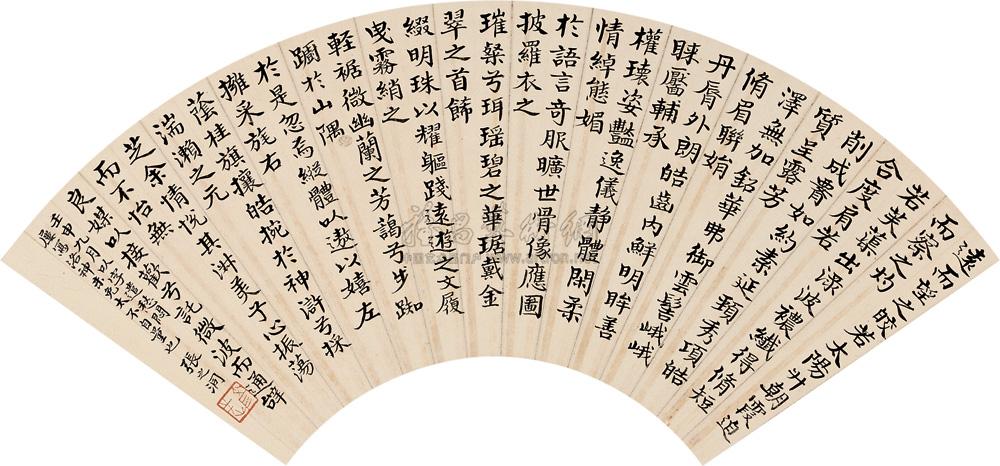 遠而望之皎若太陽升朝霞迫
而察之灼
若芙蕖出渌波襛纖得脩短
合度肩若
削成書如約素延頸秀項皓
質呈露芳
澤無加鉛華弗御雲髻峨峨
脩眉聯娟
丹脣外朗皓齒內鮮明眸善
睞靨輔承
權瓌姿豔逸儀靜體閑柔
情綽態媚
於語言奇服曠世骨像應圖
披羅衣之
璀粲兮珥瑤碧之華琚戴金
翠之首飾
綴明珠以耀軀踐遠遊之文履
曳霧綃之
輕裾微幽蘭之芳藹兮步踟
躕於山隅
於是忽焉縱體以遨以嬉左
擁采旄右
蔭桂旗攘皓捥於神滸兮採
湍瀨之元
芝余情悅其淑美兮心振蕩
而不怡無
良媒以接歡兮託微波而通辭
壬申九月
不自量也 張之洞